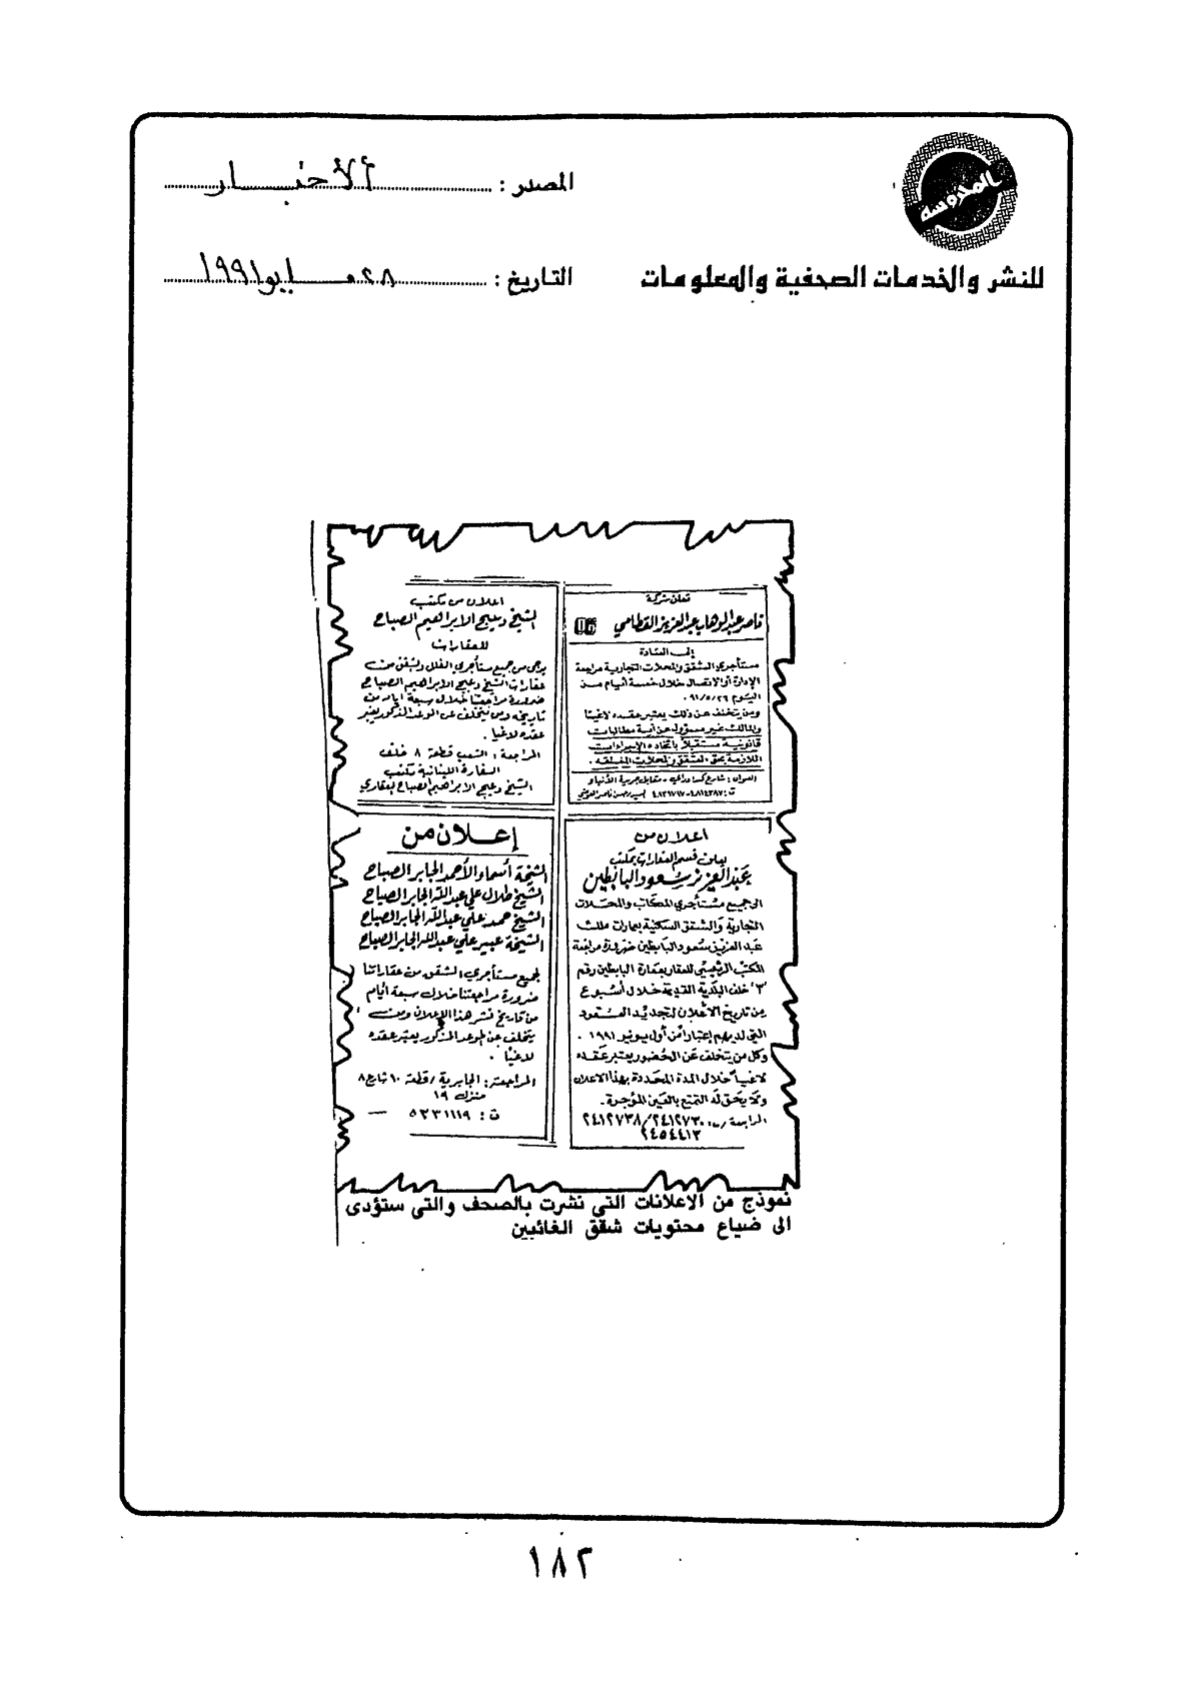 المحروسة
للنشر والخدمات الصحفية والمعلومات
المصدر : الأخبار
التاريخ : ٢٨ مايو ١٩٩١
تعلن شركة
ناصر عبدالوهاب عبدالعزيز القطامي
إلى السادة
مستأجري الشقق والمحلات التجارية مراجعة
الإدارة أو الاتصال خلال خمسة أيام من
اليوم ٩١/٥/٢٦ .
ومن يتخلف عن ذلك يعتبر عقده لاغيا
والمالك غير مسؤول عن أية مطالبات
قانونية مستقبلاً باتخاذه الإجراءات
اللازمة بحق الشقق والمحلات المغلقة .
العنوان : شارع مقابل جريدة الأنباء
اعلان من مكتب
الشيخ دعيج الابراهيم الصباح
للعقارات
يرجى من جميع مستأجري الفلل والشقق من
عقارات الشيخ دعيج الابراهيم الصباح
ضرورة مراجعتنا خلال سبعة ايام من
تاريخه ومن يتخلف عن الموعد المذكور يعتبر
عقده لاغيا .
المراجعة : الشعب قطعة ٨ خلف
السفارة اللبنانية مكتب
الشيخ دعيج الابراهيم الصباح العقاري
اعلان من
يعلن قسم العقارات بمكتب
عبدالعزيز سعود البابطين
الى جميع مستأجري المكاتب والمحلات
التجارية والشقق السكنية بعمارات ملك
عبد العزيز سعود البابطين ضرورة مراجعة
المكتب الرئيسي للعقار بعمارة البابطين رقم
"٣" خلف البلدية القديمة خلال أسبوع
من تاريخ الاعلان لتجديد العقود
التي لديهم إعتباراً من أول يونيو ١٩٩١ .
وكل من يتخلف عن الحضور يعتبر عقده
لاغياً خلال المدة المحددة بهذا الاعلان
ولا يحق له التمتع بالعين المؤجرة .
المراجعة / ت : ٢٤١٢٧٣٠/ ٢٤١٢٧٣٨
٢٤٥٤٤١٣
إعلان من
الشيخة أسماء الأحمد الجابر الصباح
الشيخ طلال علي عبدالله الجابر الصباح
الشيخ حمد علي عبدالله الجابر الصباح
الشيخة عبير علي عبدالله الجابر الصباح
لجميع مستأجري الشقق من عقاراتنا
ضرورة مراجعتنا خلال سبعة أيام
من تاريخ نشر هذا الإعلان ومن
يتخلف عن الموعد المذكور يعتبر عقده
لاغيا .
المراجعة : الجابرية / قطعة ١٠ شارع ٨
منزل ١٩
ت : ٥٣٣١١١٩
نموذج من الاعلانات التي نشرت بالصحف والتى ستؤدى
الى ضياع محتويات شقق الغائبين
١٨٢